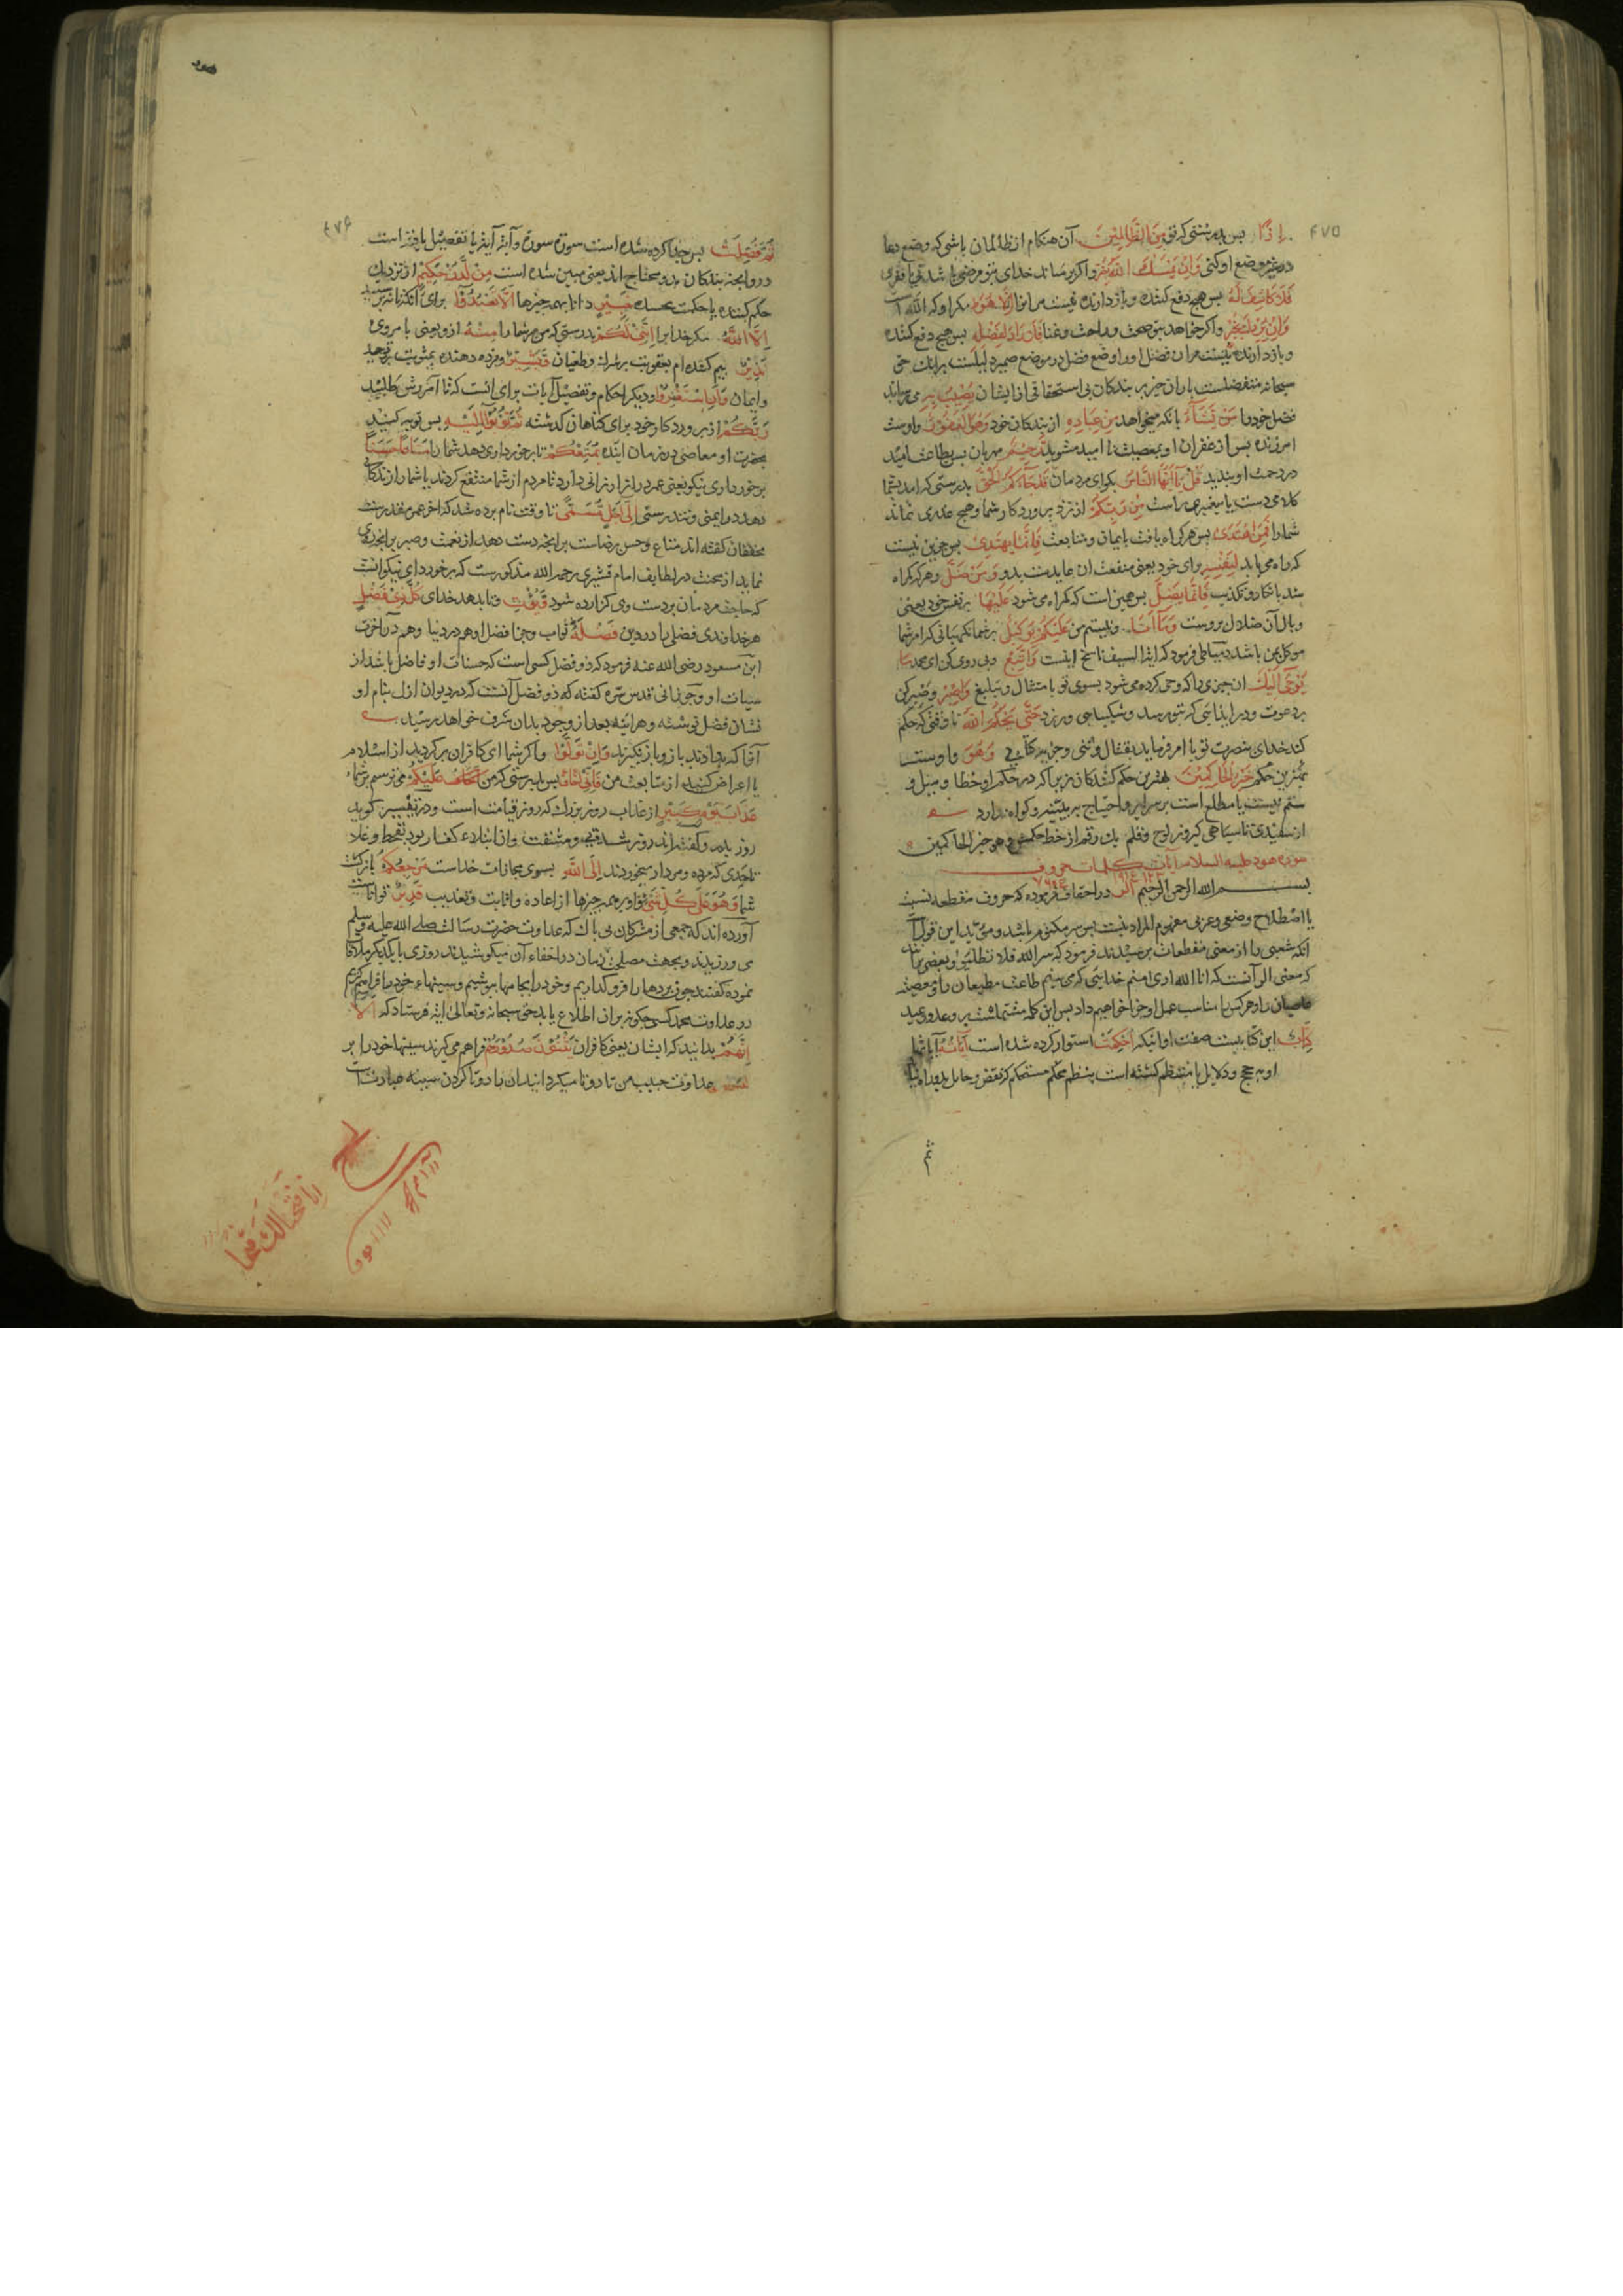 ٤٧٥
إِذًا پس بدرستی که تو مِنَ الظَّالِمِینَ آن هنکام از ظالمان باشی که وضع دعا
در غیر موضع او کنی وَاِنْ یَمْسَسْكَ اللّهُ بِضُرٍّ واکر برساند خدای بتو مرضی یا شدتی یا فقری
فَلَا کَاشِفَ لَهُ پس هیچ دفع کننده و بازدارنده نیست مر انرا اِلَّا هُوَ مکر او که الله است
وَاِنْ یُرِدْكَ بِخَیْرٍ واکر خواهد بتو صحت وراحت وغنا فَلَا رَادَّ لِفَضْلِهِ پس هیچ دفع کننده
وبازدارنده نیست مر آن فضل اورا وضع فضل در موضع ضمیر دلیلست برانك حق
سبحانه متفضلست بآن خیر بر بندکان بی استحقاقی از ایشان یُصِیبُ بِهِ می رساند
فضل خودرا مَنْ یَشَآءُ بانکه میخواهد مِنْ عِبَادِهِ از بندکان خود وَهُوَ الْغَفُورُ واوست
امرزنده پس از غفران او بمعصیت نا امید مشوید الرَّحِیمُ مهربان پس بطاعت امید
در رحمت او بندید قُلْ یَا اَیُّهَا النَّاسُ بکو ای مردمان قَدْ جَآءَکُمُ الْحَقُّ بدرستی که امد بشما
کلامی درست یا پیغمبری راست مِنْ رَبِّکُمْ از نزد پروردکار شما وهیچ عذری نماند
شمارا فَمَنِ اهْتَدَى پس هرکه راه یافت بایمان ومتابعت فَاِنَّمَا یَهْتَدِی پس جزین نیست
که راه می یابد لِنَفْسِهِ برای خود یعنی منفعت ان عایدست بدو وَمَنْ ضَلَّ وهرکه کمراه
شد بانکار وتکذیب فَاِنَّمَا یَضِلُّ پس همین است که کمراه می شود عَلَیْهَا بر نفس خود یعنی
وبال آن ضلال بروست وَمَا اَنَا ونیستم من عَلَیْکُمْ بِوَکِیلٍ بر شما نکهبانی که امر شما
موکل بمن باشد دمیاطی فرمود که ایة السیف ناسخ اینست وَاتَّبِعْ وپی روی کن ای محمد مَا
یُوحَى اِلَیْكَ ان چیزی را که وحی کرده می شود بسوی تو بامتثال وتبلیغ وَاصْبِرْ وصبر کن
بر دعوت وبر ایذایی که بتو رسد وشکیبایی ورزد حَتَّى یَحْکُمَ اللّهُ تا وقتی که حکم
کند خدای بنصرت تو یا امر فرماید بقتال وثنی وجزیه کتابی وَهُوَ واوست
بهترین حکم خَیْرُ الْحَاکِمِینَ بهترین حکم کنندکان زیرا که در حکم او خطا ومیل و
ستم نیست یا مطلع است بر سرایر واحتیاج ببینه وکواه ندارد
از سفیدی تا سیاهی کیر وز لوح وقلم یك رقم از خط حکمش وهو خیر الحاکمین
سوره هود علیه السلام آیات کلمات حروف
بسم الله الرحمن الرحیم الر در احقاف فرموده که حروف مقطعه نسبت
با اصطلاح وضعی وعربی مفهوم المراد نیست پس سر مکتوم باشد ومؤید این قول
انکه شعبی را از معنی مقطعات پرسیدند فرمود که سر الله فلا تطلبوا وبعضی برانند
که معنی الر آنست که انا الله اری منم خدایی که می بینم طاعت مطیعان را ومعصیت
عاصیان را وهرکس را مناسب عمل او جزا خواهیم داد پس این کلمه مشتملست بر وعد ووعید
کِتَابٌ این کتابیست صفت او انیکه اُحْکِمَتْ استوار کرده شده است آیَاتُهُ آیاتها
او بحجج ودلایل یا منتظم کشته است بنظم محکم مستحکم که نقض وخلل بدو راه نیابد
ثم
هود
٤٧٦
ثُمَّ فُصِّلَتْ پس جدا کرده شده است سورة سورة وآیة آیة یا تفصیل یافته است
درو انچه بندکان بدو محتاج اند یعنی مبین شده است مِنْ لَدُنْ حَکِیمٍ از نزدیك
حکم کننده یا حکمت بخشنده خَبِیرٍ دانا بهمه چیزها اَلَّا تَعْبُدُوا برای آنکه نپرستید
اِلَّا اللّهَ مکر خدایرا اِنَّنِی لَکُمْ بدرستی که من مر شمارا مِنْهُ ازو یعنی بامر وی
نَذِیرٌ بیم کننده ام بعقوبت بر شرك وطغیان وَبَشِیرٌ ومژده دهنده بمثوبت بر توحید
وایمان وَاَنِ اسْتَغْفِرُوا ودیکر احکام وتفصیل آیات برای انست که تا آمرزش طلبید
رَبَّکُمْ از پروردکار خود برای کناهان کذشته ثُمَّ تُوبُوا اِلَیْهِ پس توبه کنید
بحضرت او معاصی در زمان اینده یُمَتِّعْکُمْ تا برخورداری دهد شمارا مَتَاعًا حَسَنًا
برخورداری نیکو یعنی عمر دراز ارزانی دارد تا مردم از شما منتفع کردند یا شمارا زندکانی
دهد در ایمنی وتندرستی اِلَى اَجَلٍ مُسَمًّى تا وقت نام برده شده که اخر عمر مقدرست
محققان کفته اند متاع حسن رضاست بر انچه دست دهد از نعمت وصبر بر انچه روی
نماید از محنت در لطایف امام قشیری رحمه الله مذکورست که برخورداری نیکو انست
که حاجت مردمان بر دست وی کزارده شود وَیُؤْتِ وتا بدهد خدای کُلَّ ذِی فَضْلٍ
هر خداوندی فضلی را در دین فَضْلَهُ ثواب وجزا فضل او هم در دنیا وهم در آخرت
ابن مسعود رضی الله عنه فرمود که ذو فضل کسی است که حسنات او فاضل باشد از
سیات او وجوزجانی قدس سره کفته که ذو فضل آنست که در دیوان ازل بنام او
نشان فضل نوشته وهر اینه بعد از وجود بدان شرف خواهد رسید
آنرا که بدادند ازو باز نکیرند وَاِنْ تَوَلَّوْا واکر شما ای کافران بر کردید از اسلام
یا اعراض کنید از متابعت من فَاِنِّی اَخَافُ پس بدرستی که من اَخَافُ عَلَیْکُمْ می ترسم بر شما
عَذَابَ یَوْمٍ کَبِیرٍ از عذاب روز بزرك که روز قیامت است ودر تفسیر کوید
روز بدر وکفته اند روز شدت ومشقت وان ابتلاء کفار بود بقحط وغلا
تا حدی که مرده ومردار میخوردند اِلَى اللّهِ بسوی مجازات خداست مَرْجِعُکُمْ بازکشت
شما وَهُوَ عَلَى کُلِّ شَیْءٍ واو بر همه چیزها از اعاده واثابت وتعذیب قَدِیرٌ تواناست
آورده اند که جمعی از مشرکان بی باك که عداوت حضرت رسالت صلی الله علیه وسلم
می ورزیدند وبجهت مصلحت زمان در اخفاء آن میکوشیدند روزی با یکدیکر ملاقات
نموده کفتند چون پردهارا فرو کذاریم وخودرا بجامها بپوشیم وسینهاء خودرا فراهم کنیم
در عداوت محمد کسی چکونه بران اطلاع یابد حق سبحانه وتعالی ایة فرستاد که اَلَا
اِنَّهُمْ بدانید که ایشان یعنی کافران یَثْنُونَ صُدُورَهُمْ فراهم می کیرند سینها خودرا بر
عداوت حبیب من تا دوتا میکردانند ان یا دوتا کردن سینه عبارتست
انا فتحنا لك فتحا